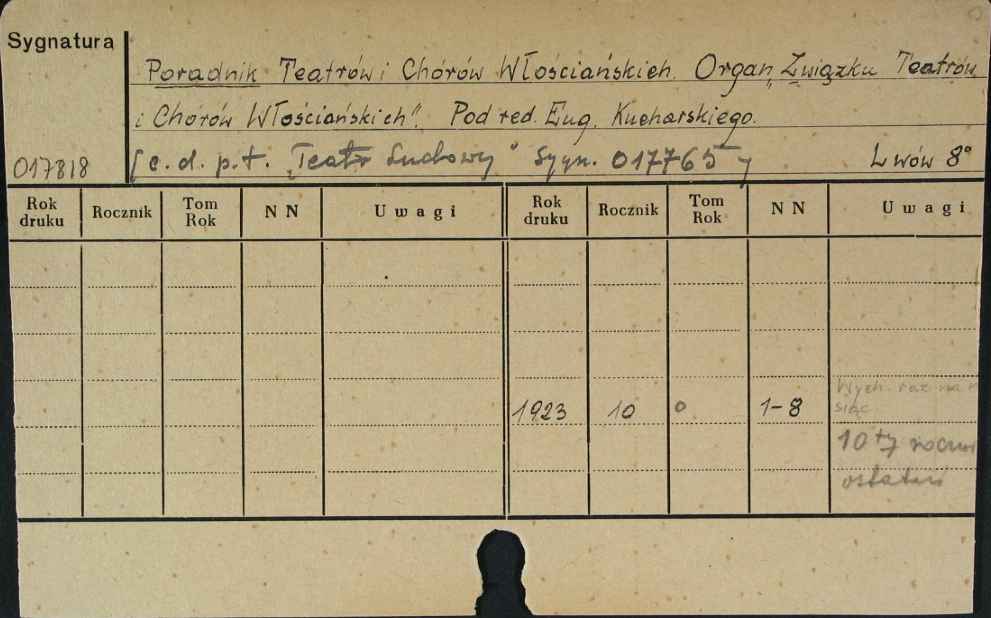 Sygnatura
Poradnik Teatrów i Chórów Włościańskich. Organ „Związku Teatrów
i Chórów Włościańskich". Pod red. Eug. Kucharskiego.
017818 [c. d. p. t. „Teatr Ludowy" Sygn. 017765] Lwów 8°
Rok druku Rocznik Tom Rok NN Uwagi Rok druku Rocznik Tom Rok NN Uwagi
Wych. raz na m
1923 10 0 1-8 siąc
10ty roczni
ostatni